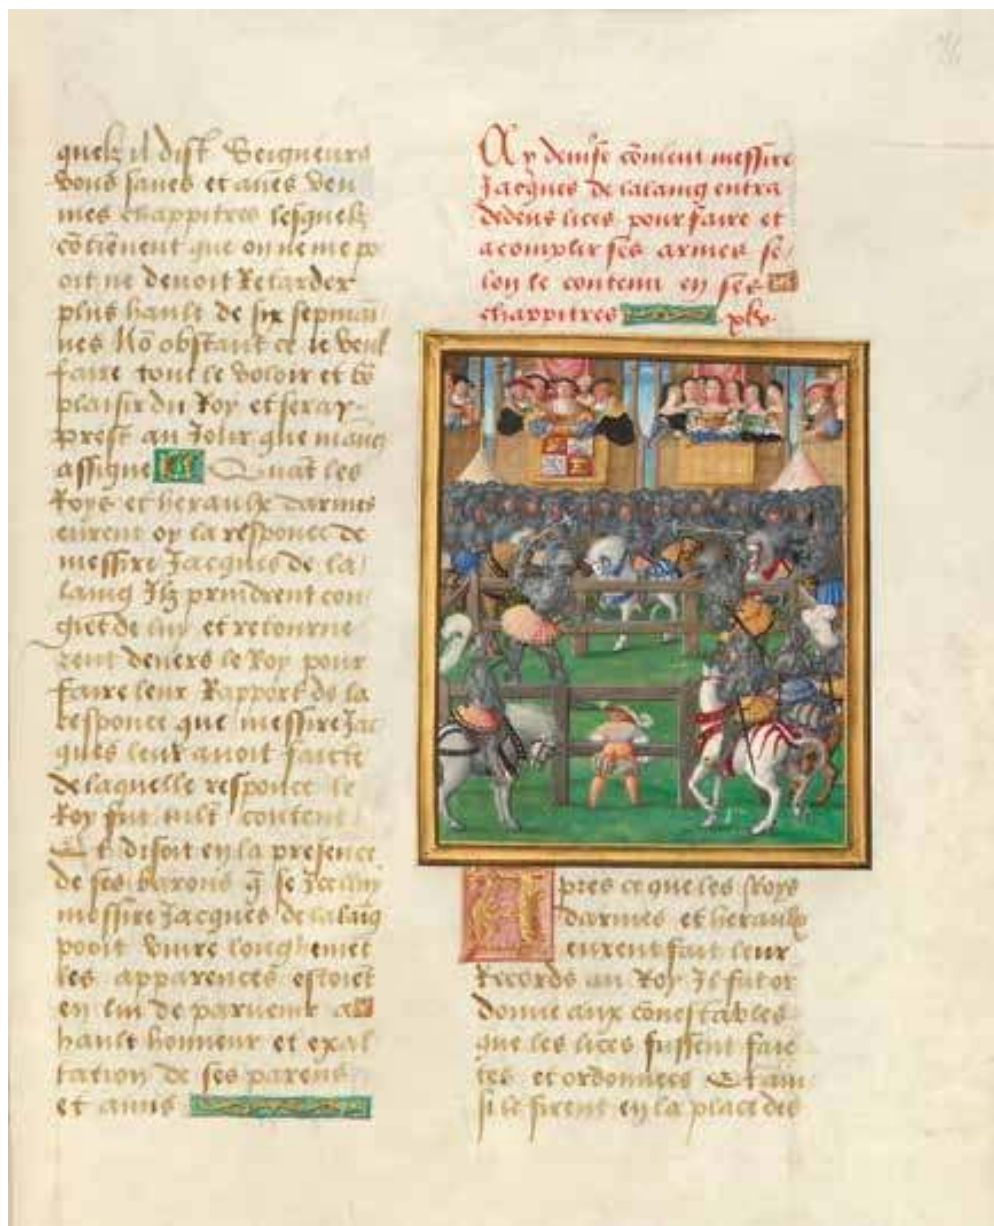 quelz il dist Seigneurs
vous saues et aues veu
mes chappitres lesquelz
cōtiēnent que on ne me po
oit ne deuoit Retarder
plus hault de six sepmai
nes Nō obstant ce ie veul
faire tout le voloir et bō
plaisir du Roy et seray
prest au Jour que maues
assigne Quāt les
Roys et heraulx darmes
eurent oy la responce de
messire Jacques de la
laing Ilz prindrent con
giet de lui et retourne
rent deuers le Roy pour
faire leur Rapport de la
responce que messire Jac
ques leur auoit faicte
de laquelle responce le
Roy fut content
Et disoit en la presence
de ses barons q̄ se
messire Jacques de lalaīg
pooit viure longhemēt
les apparences estoiēt
en lui de paruenir a
hault honneur et exal
tation de ses parens
et amis
Cy deuise cōment messire
Jacques de lalaing entra
dedens lices pour faire et
acomplir ses armes se
lon le contenu en ses
chappitres xlv
Apres ce que les Roys
darmes et heraulx
eurent fait leur
Recors au Roy Il fut or
donne aux conestables
que les lices fussent faic
tes et ordonnees Et ain
si le firent en la place des